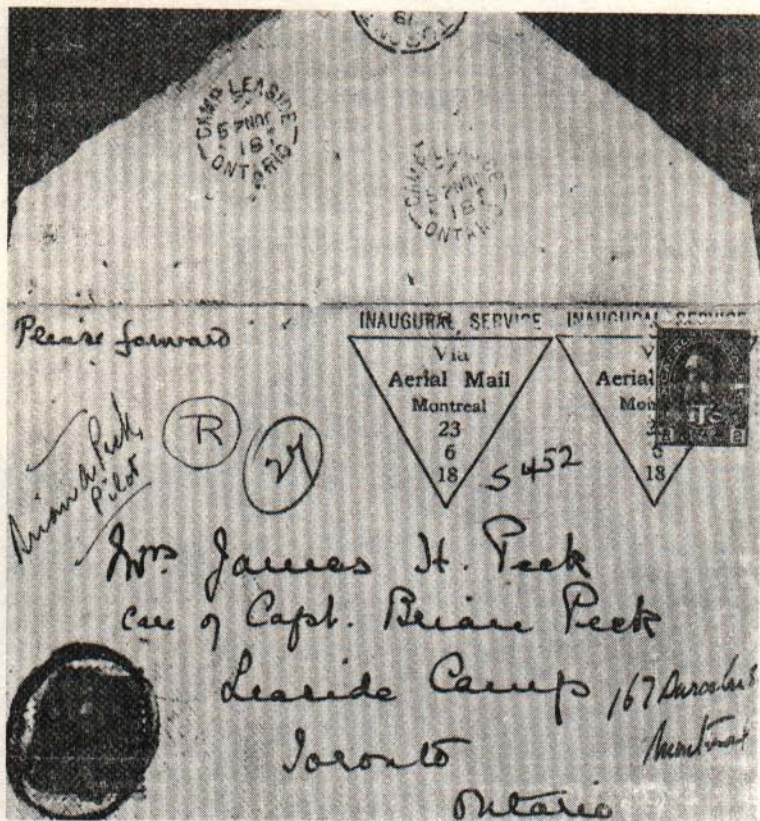 CAMP LEASIDE
JUN 24
18
ONTARIO
CAMP
JUN 24
18
ONTARIO
Please forward
INAUGURAL SERVICE
Via
Aerial Mail
Montreal
23
6
18
INAUGURAL SERVICE
Aerial
23
6
18
R
27
Brian A. Peck,
Pilot
S 452
Mrs. James H. Peck
care of Capt. Brian Peck
Leaside Camp
Toronto
Ontario
167
Montreal